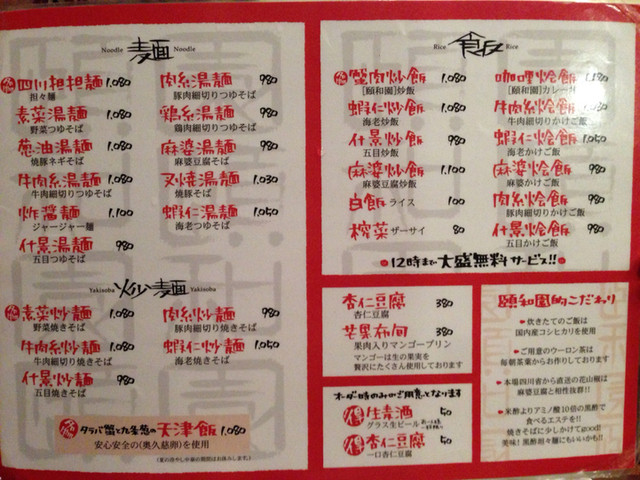 Noodle 麺 Noodle
四川担担麺 1.080
担々麺
素菜湯麺 1.080
野菜つゆそば
葱油湯麺 1.080
焼豚ネギそば
牛肉糸湯麺 1.080
牛肉細切りつゆそば
炸醤麺 1.100
ジャージャー麺
什景湯麺 980
五目つゆそば
肉糸湯麺 980
豚肉細切りつゆそば
鶏糸湯麺 980
鶏肉細切りつゆそば
麻婆湯麺 980
麻婆豆腐そば
叉焼湯麺 1.030
焼豚そば
蝦仁湯麺 1.050
海老つゆそば
Yakisoba 炒麺 Yakisoba
素菜炒麺 1.080
野菜焼きそば
牛肉糸炒麺 1.080
牛肉細切り焼きそば
什景炒麺 980
五目焼きそば
肉糸炒麺 980
豚肉細切り焼きそば
蝦仁炒麺 1.050
海老焼きそば
タラバ蟹と九条葱の天津飯 1.080
安心安全の(奥久慈卵)を使用
Rice 飯 Rice
蟹肉炒飯 1.080
[頤和園]炒飯
蝦仁炒飯 1.080
海老炒飯
什景炒飯 980
五目炒飯
麻婆炒飯 1.080
麻婆豆腐炒飯
白飯 ライス 100
榨菜 ザーサイ 80
咖喱烩飯 1.180
[頤和園]カレー
牛肉糸烩飯 1.080
牛肉細切りかけご飯
蝦仁烩飯 1.050
海老かけご飯
麻婆烩飯 980
麻婆かけご飯
肉糸烩飯 980
豚肉細切りかけご飯
什景烩飯 980
五目かけご飯
12時まで大盛無料サービス!!
杏仁豆腐 380
杏仁豆腐
芒果布甸 380
果肉入りマンゴープリン
マンゴーは生の果実を
贅沢にたくさん使用しております
オーダー時のみのご用意となります
得 生麦酒 50
グラス生ビール
得 杏仁豆腐 50
一口杏仁豆腐
頤和園的こだわり
炊きたてのご飯は
国内産コシヒカリを使用
ご用意のウーロン茶は
毎朝茶葉からお作りしております
本場四川省から直送の花山椒は
麻婆豆腐と相性抜群!!
米酢よりアミノ酸10倍の黒酢で
食べるエステを!!
焼きそばに少しかけてgood!
美味!黒酢担々麺にもいいかも!!